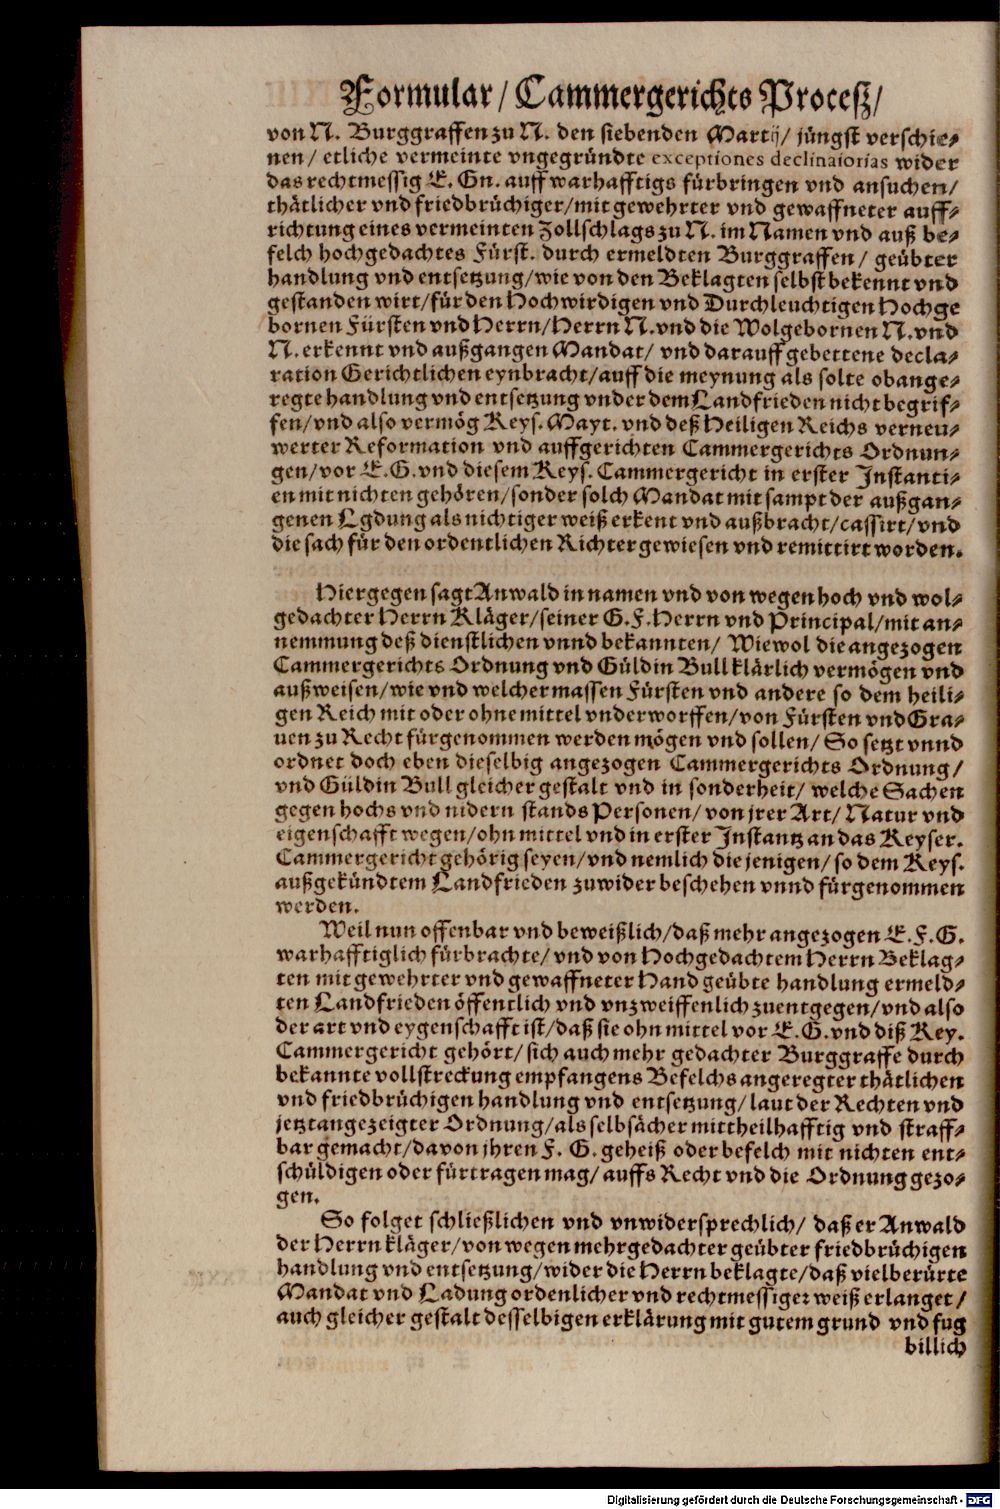 Formular / Cammergerichts Proceſz /
von N. Burggraffen zu N. den ſiebenden Martij / jüngſt verſchie⸗
nen / etliche vermeinte vngegründte exceptiones declinatorias wider
das rechtmeſſig E. Gn. auff warhafftigs fürbringen vnd anſuchen /
thätlicher vnd friedbrüchiger / mit gewehrter vnd gewaffneter auff⸗
richtung eines vermeinten Zollſchlags zu N. im Namen vnd auß be⸗
felch hochgedachtes Fürſt. durch ermeldten Burggraffen / geübter
handlung vnd entſetzung / wie von den Beklagten ſelbſt bekennt vnd
geſtanden wirt / für den Hochwirdigen vnd Durchleuchtigen Hochge
bornen Fürſten vnd Herrn / Herrn N. vnd die Wolgebornen N. vnd
N. erkennt vnd außgangen Mandat / vnd darauff gebettene decla⸗
ration Gerichtlichen eynbracht / auff die meynung als ſolte obange⸗
regte handlung vnd entſetzung vnder dem Landfrieden nicht begrif⸗
fen / vnd alſo vermög Keyſ. Mayt. vnd deß Heiligen Reichs verneu⸗
werter Reformation vnd auffgerichten Cammergerichts Ordnun⸗
gen / vor E. G. vnd dieſem Keyſ. Cammergericht in erſter Inſtanti⸗
en mit nichten gehören / ſonder ſolch Mandat mit ſampt der außgan⸗
genen Lgdung als nichtiger weiß erkent vnd außbracht / caſſirt / vnd
die ſach für den ordentlichen Richter gewieſen vnd remittirt worden.
Hiergegen ſagt Anwald in namen vnd von wegen hoch vnd wol⸗
gedachter Herrn Kläger / ſeiner G. F. Herrn vnd Principal / mit an⸗
nemmung deß dienſtlichen vnnd bekannten / Wiewol die angezogen
Cammergerichts Ordnung vnd Güldin Bull klärlich vermögen vnd
außweiſen / wie vnd welcher maſſen Fürſten vnd andere ſo dem heili⸗
gen Reich mit oder ohne mittel vnderworffen / von Fürſten vnd Gra⸗
uen zu Recht fürgenommen werden mögen vnd ſollen / So ſetzt vnnd
ordnet doch eben dieſelbig angezogen Cammergerichts Ordnung /
vnd Güldin Bull gleicher geſtalt vnd in ſonderheit / welche Sachen
gegen hochs vnd nidern ſtands Perſonen / von jrer Art / Natur vnd
eigenſchafft wegen / ohn mittel vnd in erſter Inſtantz an das Keyſer.
Cammergericht gehörig ſeyen / vnd nemlich die jenigen / ſo dem Keyſ.
außgekündtem Landfrieden zuwider beſchehen vnnd fürgenommen
werden.
Weil nun offenbar vnd beweißlich / daß mehr angezogen E. F. G.
warhafftiglich fürbrachte / vnd von Hochgedachtem Herrn Beklag⸗
ten mit gewehrter vnd gewaffneter Hand geübte handlung ermeld⸗
ten Landfrieden öffentlich vnd vnzweiffenlich zuentgegen / vnd alſo
der art vnd eygenſchafft iſt / daß ſie ohn mittel vor E. G. vnd diß Key.
Cammergericht gehört / ſich auch mehr gedachter Burggraffe durch
bekannte vollſtreckung empfangens Befelchs angeregter thätlichen
vnd friedbrüchigen handlung vnd entſetzung / laut der Rechten vnd
jetzt angezeigter Ordnung / als ſelbſächer mittheilhafftig vnd ſtraff⸗
bar gemacht / davon jhren F. G. geheiß oder befelch mit nichten ent⸗
ſchüldigen oder fürtragen mag / auffs Recht vnd die Ordnung gezo⸗
gen.
So folget ſchließlichen vnd vnwiderſprechlich / daß er Anwald
der Herrn kläger / von wegen mehrgedachter geübter friedbrüchigen
handlung vnd entſetzung / wider die Herrn beklagte / daß vielberürte
Mandat vnd Ladung ordenlicher vnd rechtmeſſiger weiß erlanget /
auch gleicher geſtalt deſſelbigen erklärung mit gutem grund vnd fug
billich
Digitalisierung gefördert durch die Deutsche Forschungsgemeinschaft - DFG